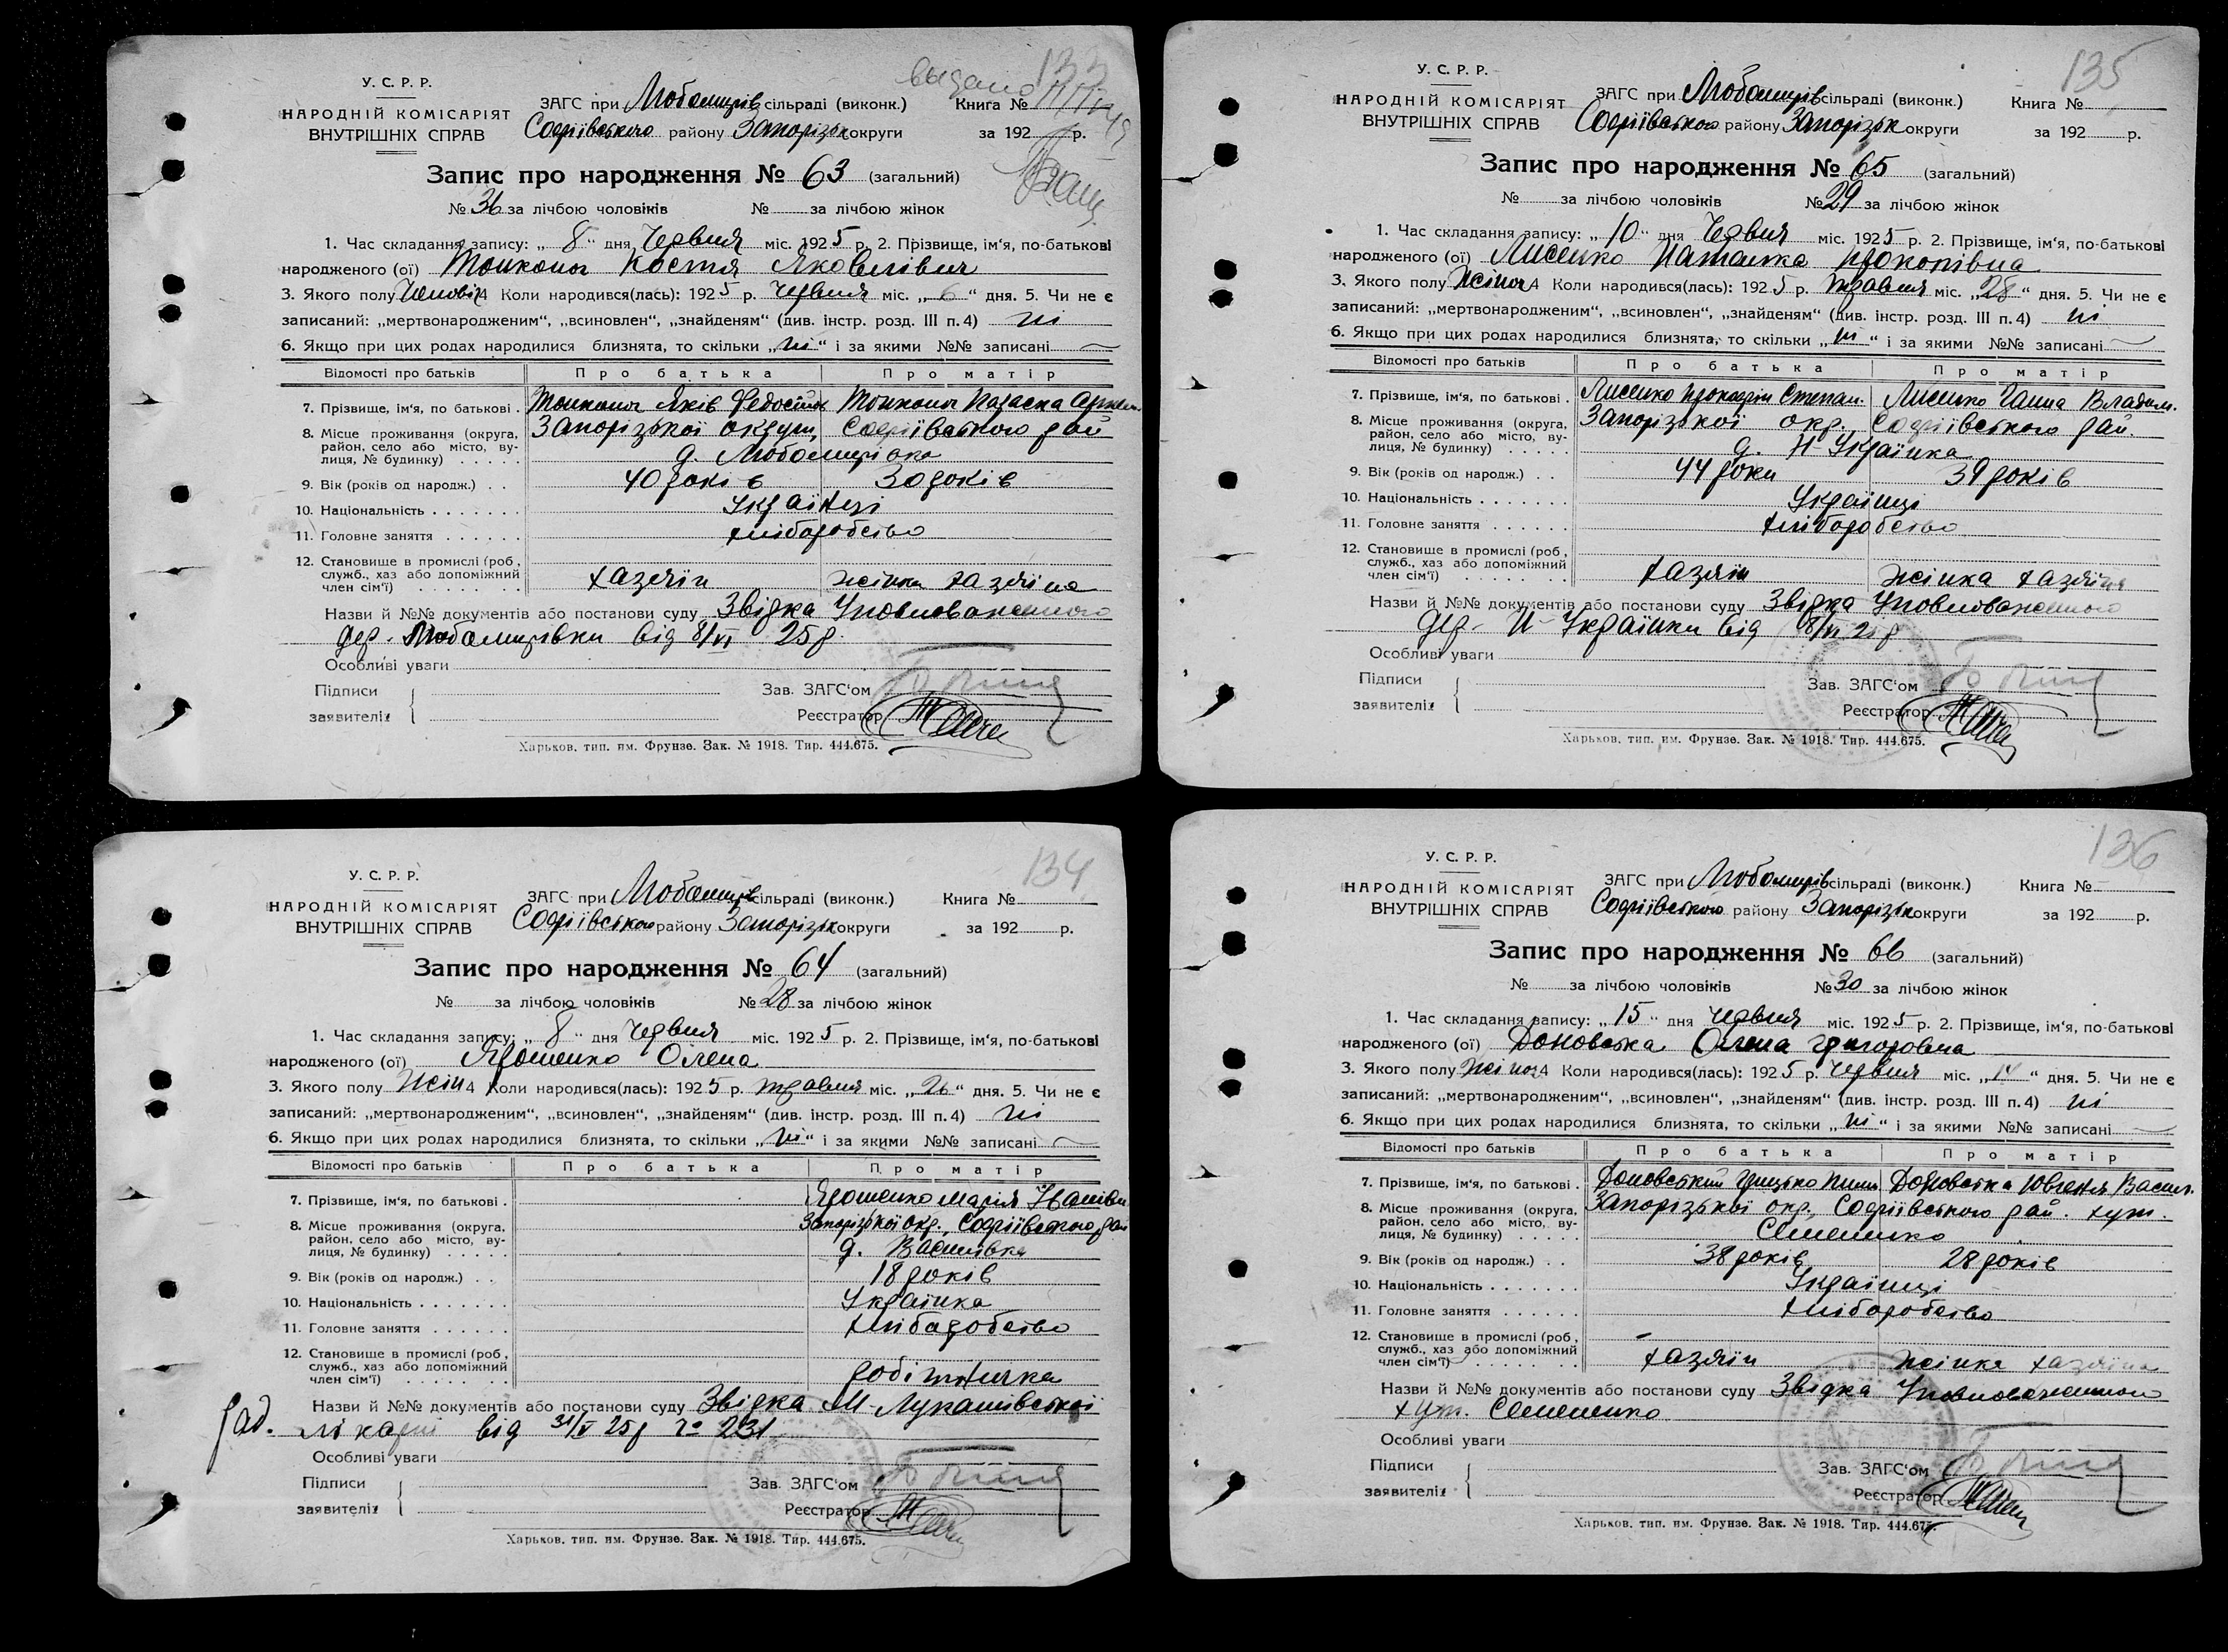 133
выдано
У. С. Р. Р.
НАРОДНІЙ КОМІСАРІЯТ
ВНУТРІШНІХ СПРАВ
ЗАГС при Любомирів сільраді (виконк.) Книга №
Софіївського району Запорізьк округи за 192 р.
Запис про народження № 63 (загальний)
№ 36 за лічбою чоловіків № за лічбою жінок
1. Час складання запису: „ 8 “ дня Червня міс. 1925 р. 2. Прізвище, ім‘я, по-батькові
народженого (ої) Тонконог Костя Яковлівич
3. Якого полу Чоловік 4 Коли народився(лась): 1925 р. червня міс. „ 6 “ дня. 5. Чи не є
записаний: „мертвонародженим“, „всиновлен“, „знайденям“ (див. інстр. розд. III п. 4) ні
6. Якщо при цих родах народилися близнята, то скільки „ ні “ і за якими №№ записані
Відомості про батьків Про батька Про матір
7. Прізвище, ім‘я, по батькові . Тонконог Яків Федосійов Тонконог Параска
8. Місце проживання (округа, Запорізької округи, Софіївського рай
район, село або місто, ву-
лиця, № будинку) . . . . . д. Любомирівка
9. Вік (років од народж.) . . 40 років 30 років
10. Національність . . . . . . . Українці
11. Головне заняття . . . . . . хліборобство
12. Становище в промислі (роб,
служб., хаз або допоміжний
член сім‘ї) . . . . . . . хазяїн жінка хазяїна
Назви й №№ документів або постанови суду Звідка Уповноваженного
дер. Любомирівки від 8/VI 25 р.
Особливі уваги
Підписи
заявителів
Зав. ЗАГС‘ом
Реєстратор
Харьков. тип. им. Фрунзе. Зак. № 1918. Тир. 444.675.
135
У. С. Р. Р.
НАРОДНІЙ КОМІСАРІЯТ
ВНУТРІШНІХ СПРАВ
ЗАГС при Любомирів сільраді (виконк.) Книга №
Софіївського району Запорізьк округи за 192 р.
Запис про народження № 65 (загальний)
№ за лічбою чоловіків № 29 за лічбою жінок
1. Час складання запису: „ 10 “ дня Червня міс. 1925 р. 2. Прізвище, ім‘я, по-батькові
народженого (ої) Лисенко Наталка Прокопівна
3. Якого полу Жіноч 4 Коли народився(лась): 1925 р. травня міс. „ 28 “ дня. 5. Чи не є
записаний: „мертвонародженим“, „всиновлен“, „знайденям“ (див. інстр. розд. III п. 4) ні
6. Якщо при цих родах народилися близнята, то скільки „ ні “ і за якими №№ записані
Відомості про батьків Про батька Про матір
7. Прізвище, ім‘я, по батькові . Лисенко Прокофій Степан. Лисенко Ганна Владим.
8. Місце проживання (округа, Запорізької окр. Софіївського рай.
район, село або місто, ву-
лиця, № будинку) . . . . . д. Н-Українка
9. Вік (років од народж.) . . 44 роки 39 років
10. Національність . . . . . . . Українці
11. Головне заняття . . . . . . хліборобство
12. Становище в промислі (роб,
служб., хаз або допоміжний
член сім‘ї) . . . . . . . хазяїн жінка хазяїна
Назви й №№ документів або постанови суду Звідка Уповноваженного
дер. Н-Українки від 8/VI 25 р
Особливі уваги
Підписи
заявителів
Зав. ЗАГС‘ом
Реєстратор
Харьков. тип. им. Фрунзе. Зак. № 1918. Тир. 444.675.
134
У. С. Р. Р.
НАРОДНІЙ КОМІСАРІЯТ
ВНУТРІШНІХ СПРАВ
ЗАГС при Любомирів сільраді (виконк.) Книга №
Софіївського району Запорізьк округи за 192 р.
Запис про народження № 64 (загальний)
№ за лічбою чоловіків № 28 за лічбою жінок
1. Час складання запису: „ 8 “ дня Червня міс. 1925 р. 2. Прізвище, ім‘я, по-батькові
народженого (ої) Ярошенко Олена
3. Якого полу Жін 4 Коли народився(лась): 1925 р. травня міс. „ 26 “ дня. 5. Чи не є
записаний: „мертвонародженим“, „всиновлен“, „знайденям“ (див. інстр. розд. III п. 4) ні
6. Якщо при цих родах народилися близнята, то скільки „ ні “ і за якими №№ записані
Відомості про батьків Про батька Про матір
7. Прізвище, ім‘я, по батькові . Ярошенко Марія Іванівн
8. Місце проживання (округа, Запорізької окр. Софіївського рай
район, село або місто, ву-
лиця, № будинку) . . . . . д. Василівка
9. Вік (років од народж.) . . 18 років
10. Національність . . . . . . . Українка
11. Головне заняття . . . . . . хліборобство
12. Становище в промислі (роб,
служб., хаз або допоміжний
член сім‘ї) . . . . . . . робітничка
Назви й №№ документів або постанови суду Звідка М-Лукашівської
рад. лікарні від 31/V 25 р № 231
Особливі уваги
Підписи
заявителів
Зав. ЗАГС‘ом
Реєстратор
Харьков. тип. им. Фрунзе. Зак. № 1918. Тир. 444.675.
136
У. С. Р. Р.
НАРОДНІЙ КОМІСАРІЯТ
ВНУТРІШНІХ СПРАВ
ЗАГС при Любомирів сільраді (виконк.) Книга №
Софіївського району Запорізьк округи за 192 р.
Запис про народження № 66 (загальний)
№ за лічбою чоловіків № 30 за лічбою жінок
1. Час складання запису: „ 15 “ дня червня міс. 1925 р. 2. Прізвище, ім‘я, по-батькові
народженого (ої) Доновська Олена Григоровна
3. Якого полу Жіноч 4 Коли народився(лась): 1925 р. червня міс. „ 14 “ дня. 5. Чи не є
записаний: „мертвонародженим“, „всиновлен“, „знайденям“ (див. інстр. розд. III п. 4) ні
6. Якщо при цих родах народилися близнята, то скільки „ ні “ і за якими №№ записані
Відомості про батьків Про батька Про матір
7. Прізвище, ім‘я, по батькові . Доновський Грицько Доновська Васил.
8. Місце проживання (округа, Запорізької окр. Софіївського рай. хут.
район, село або місто, ву-
лиця, № будинку) . . . . . Семененко
9. Вік (років од народж.) . . 38 років 28 років
10. Національність . . . . . . . Українці
11. Головне заняття . . . . . . хліборобство
12. Становище в промислі (роб,
служб., хаз або допоміжний
член сім‘ї) . . . . . . . хазяїн жінка хазяїна
Назви й №№ документів або постанови суду Звідка Уповноваженного
хут. Семененко
Особливі уваги
Підписи
заявителів
Зав. ЗАГС‘ом
Реєстратор
Харьков. тип. им. Фрунзе. Зак. № 1918. Тир. 444.675.